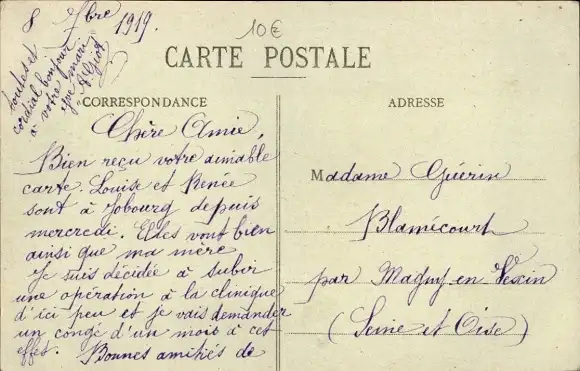 8 7bre 1919.
10€
CARTE POSTALE
cordial bonjour
à votre mari
A. Giot
CORRESPONDANCE
ADRESSE
Chère Amie,
Bien reçu votre aimable
carte. Louise et Renée
sont à Jobourg depuis
mercredi. Elles vont bien
ainsi que ma mère
Je suis décidée à subir
une opération à la clinique
d'ici peu et je vais demander
un congé d'un mois à cet
effet. Bonnes amitiés de
Madame Guérin
Blamécourt
par Magny-en-Vexin
(Seine et Oise)